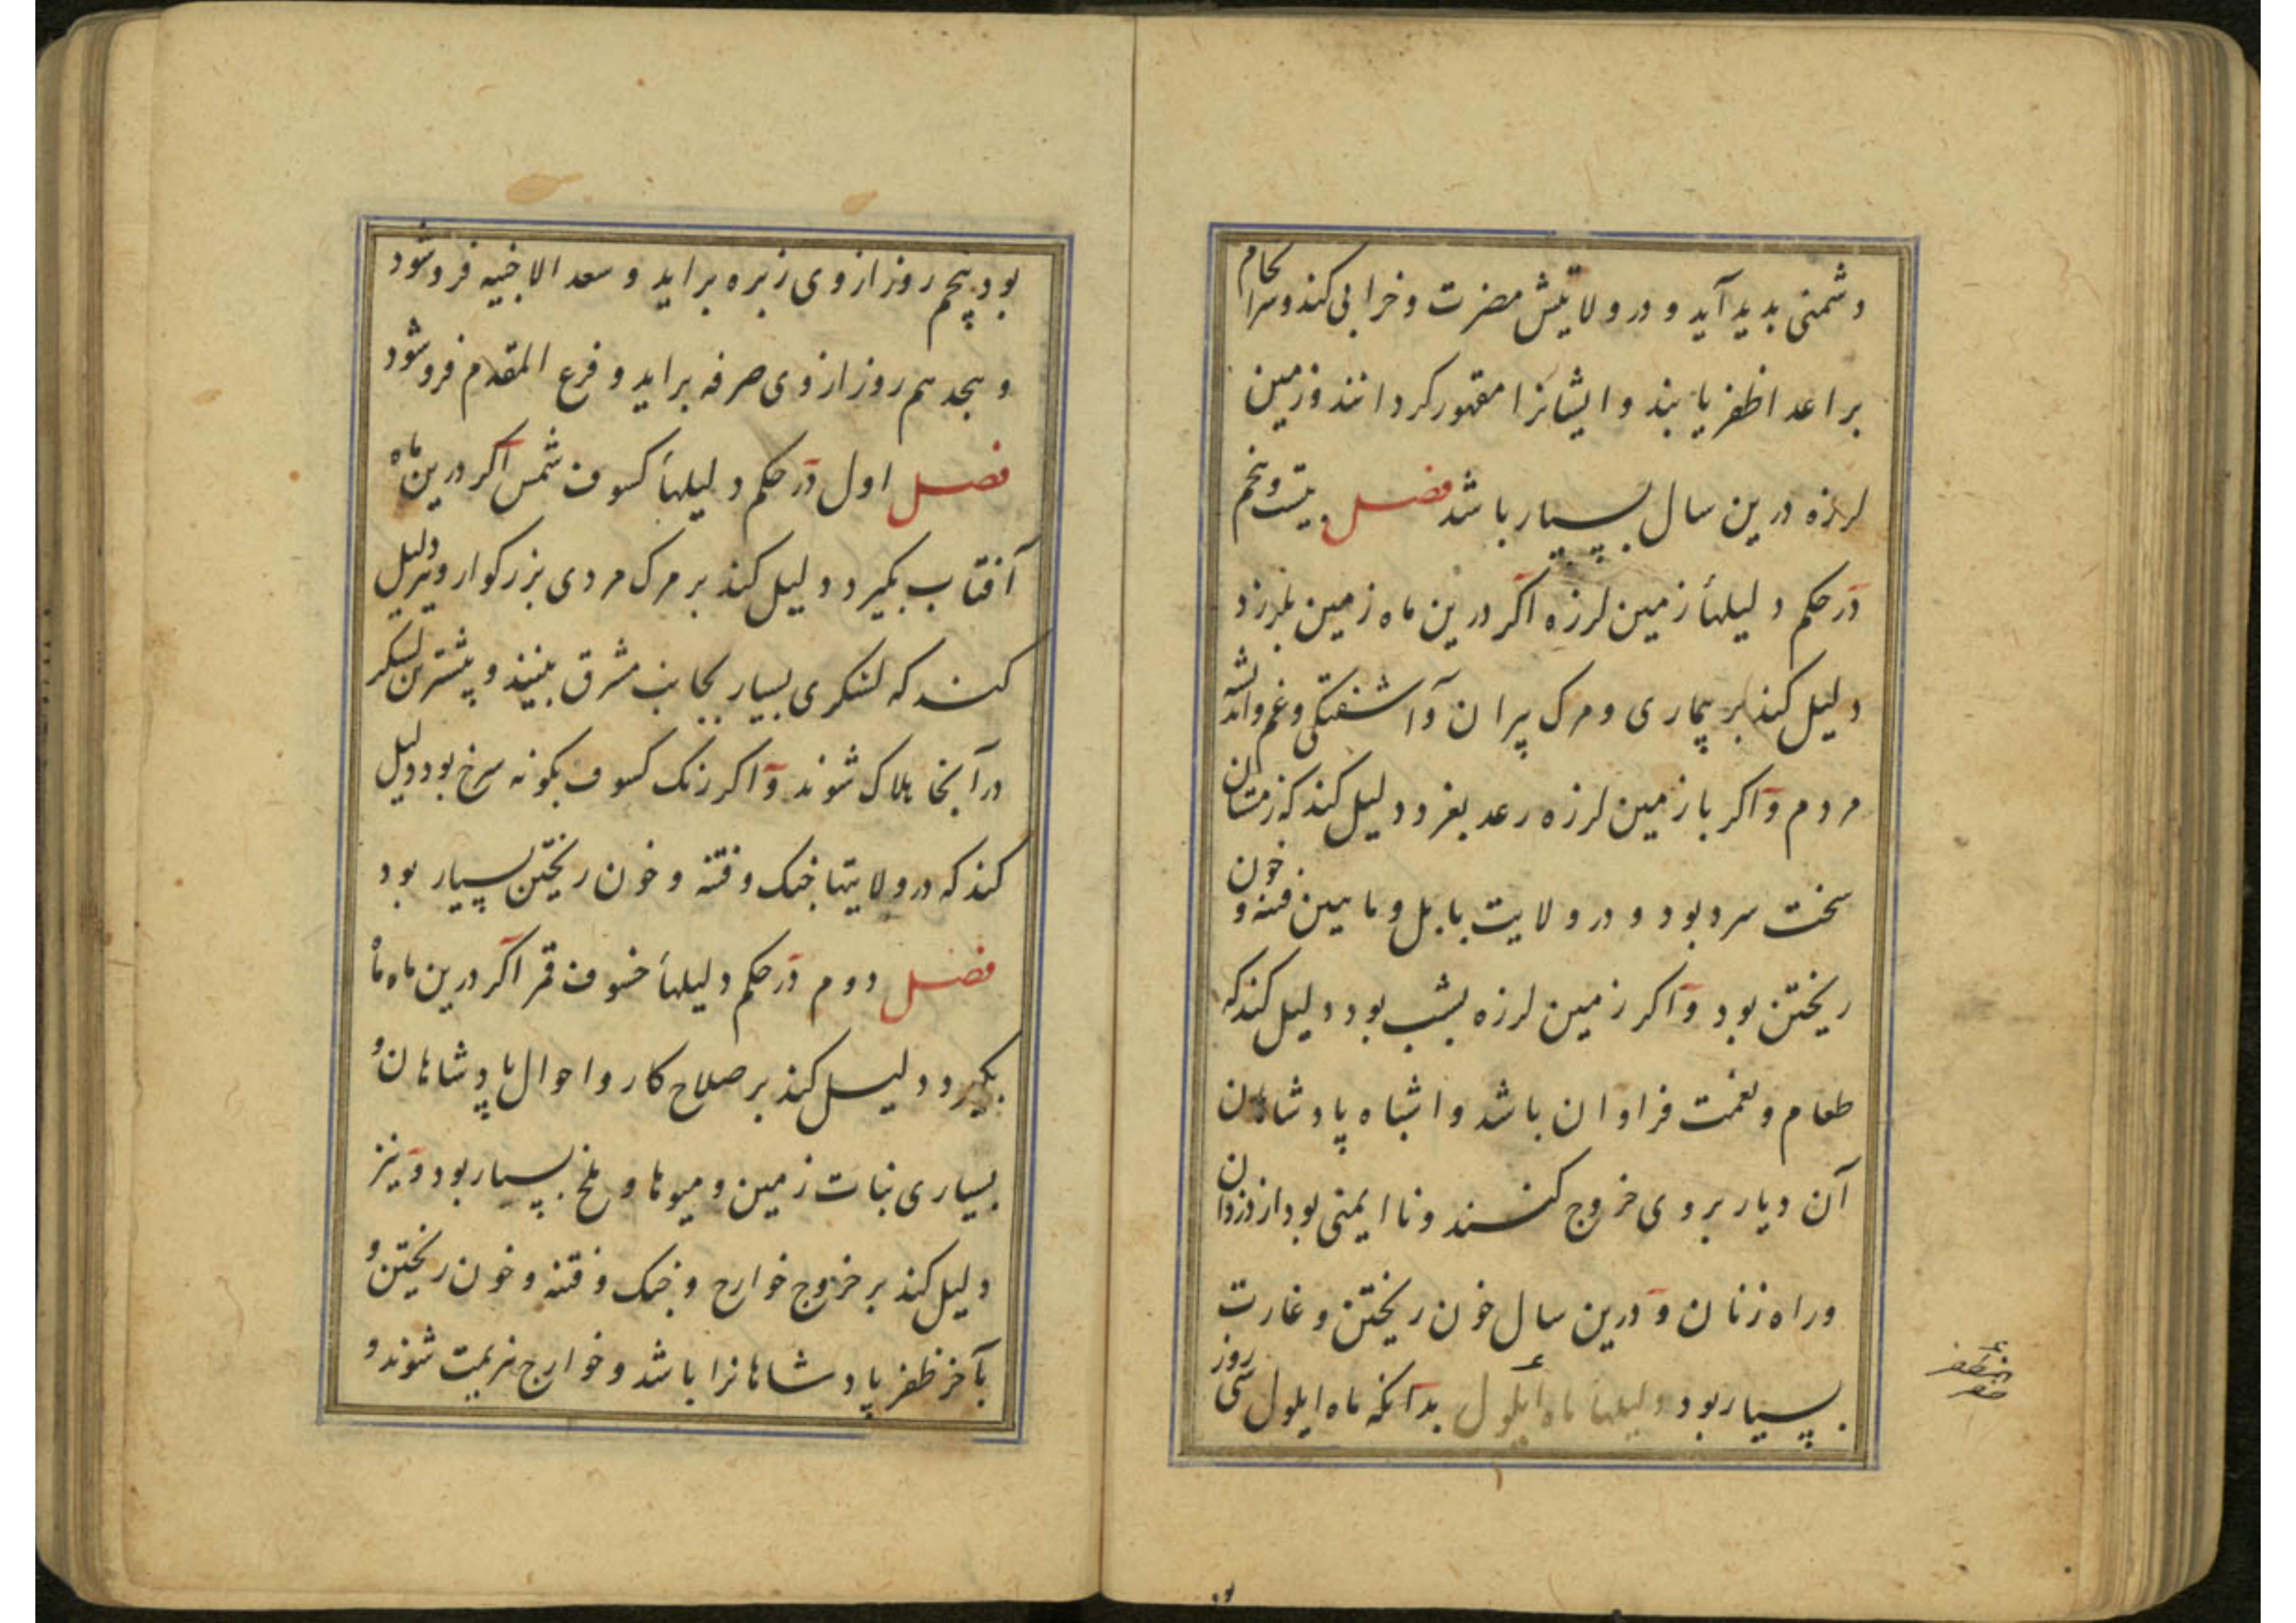 دشمنی بدید آید و در ولایتش مضرت و خرابی کند و سرانجام
بر اعدا ظفر یابند و ایشانرا مقهور کردانند و زمین
لرزه درین سال بسیار باشد فصل بیست و پنجم
در حکم دلیلهاء زمین لرزه اکر درین ماه زمین بلرزد
دلیل کند بر بیماری و مرک پیران و آشفتکی و غم و اندیشه
مردم و اکر با زمین لرزه رعد بغرد دلیل کند که زمستان
سخت سرد بود و در ولایت بابل و ماهین فتنه و خون
ریختن بود و اکر زمین لرزه بشب بود دلیل کند که
طعام و نعمت فراوان باشد و اشباه پادشاهان
آن دیار بروی خروج کنند و نا ایمنی بود از دزدان
و راه زنان و درین سال خون ریختن و غارت
بسیار بود دلیلهاء ماه ایلول بدانکه ماه ایلول سی روز
بود پنجم روز از وی زبره براید و سعد الاخبیه فرو شود
و هجدهم روز از وی صرفه براید و فرع المقدم فرو شود
فصل اول در حکم دلیلهاء کسوف شمس اکر درین ماه
آفتاب بکیرد دلیل کند بر مرک مردی بزرکوار و نیز دلیل
کند که لشکری بسیار بجانب مشرق بینند و بیشترین لشکر
در آنجا هلاک شوند و اکر رنک کسوف بکونه سرخ بود دلیل
کند که در ولایتها جنک و فتنه و خون ریختن بسیار بود
فصل دوم در حکم دلیلهاء خسوف قمر اکر درین ماه ماه
بکیرد دلیل کند بر صلاح کار و احوال پادشاهان و
بسیاری نبات زمین و میوها و ملخ بسیار بود و نیز
دلیل کند بر خروج خوارج و جنک و فتنه و خون ریختن و
بآخر ظفر پادشاهانرا باشد و خوارج هزیمت شوند و